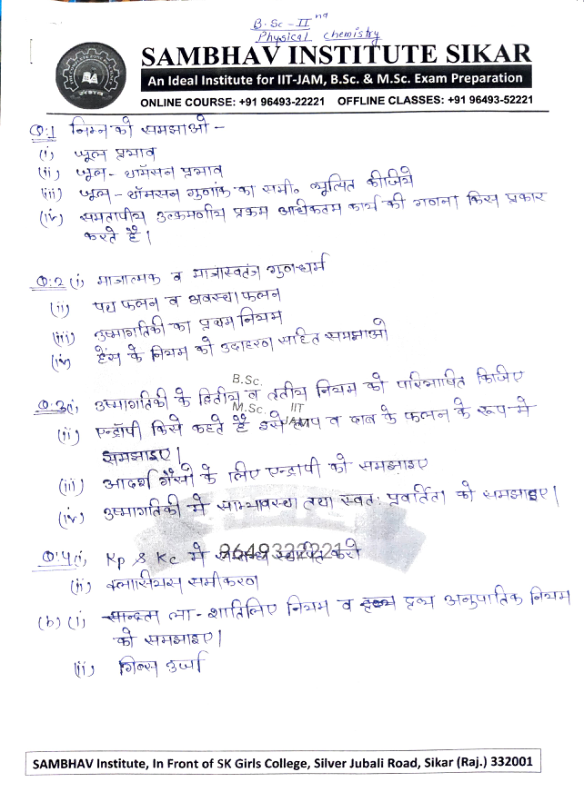 B.Sc - II nd
Physical chemistry
SAMBHAV INSTITUTE SIKAR
An Ideal Institute for IIT-JAM, B.Sc. & M.Sc. Exam Preparation
ONLINE COURSE: +91 96493-22221 OFFLINE CLASSES: +91 96493-52221
Q:1 निम्न को समझाओ -
(i) जूल प्रभाव
(ii) जूल - थॉमसन प्रभाव
(iii) जूल - थॉमसन गुणांक का समी० व्युत्पित कीजिये
(iv) समतापीय उत्क्रमणीय प्रक्रम अधिकतम कार्य की गणना किस प्रकार
करते है।
Q:2 (i) मात्रात्मक व मात्रास्वतंत्र गुणधर्म
(ii) पथ फलन व अवस्था फलन
(iii) उष्मागतिकी का प्रथम नियम
(iv) हैस के नियम को उदाहरण साहित समझाओ
B.Sc.
Q:3 (i) उष्मागतिकी के द्वितीय व तृतीय नियम को परिभाषित किजिए
M.Sc. IIT
JAM
(ii) एन्ट्रॉपी किसे कहते है इसे ताप व दाब के फलन के रूप मे
समझाइए।
(iii) आदर्श गैसो के लिए एन्ट्रापी को समझाइए
(iv) उष्मागतिकी मे साम्यावस्था तथा स्वतः प्रवर्तिता को समझाइए।
9649322221
Q:4 (i) Kp & Kc मे करो
(ii) क्लासियस समीकरण
(b) (i) ला - शातिलिए नियम व द्रव्य अनुपातिक नियम
को समझाइए।
(ii) गिब्स उर्जा
SAMBHAV Institute, In Front of SK Girls College, Silver Jubali Road, Sikar (Raj.) 332001